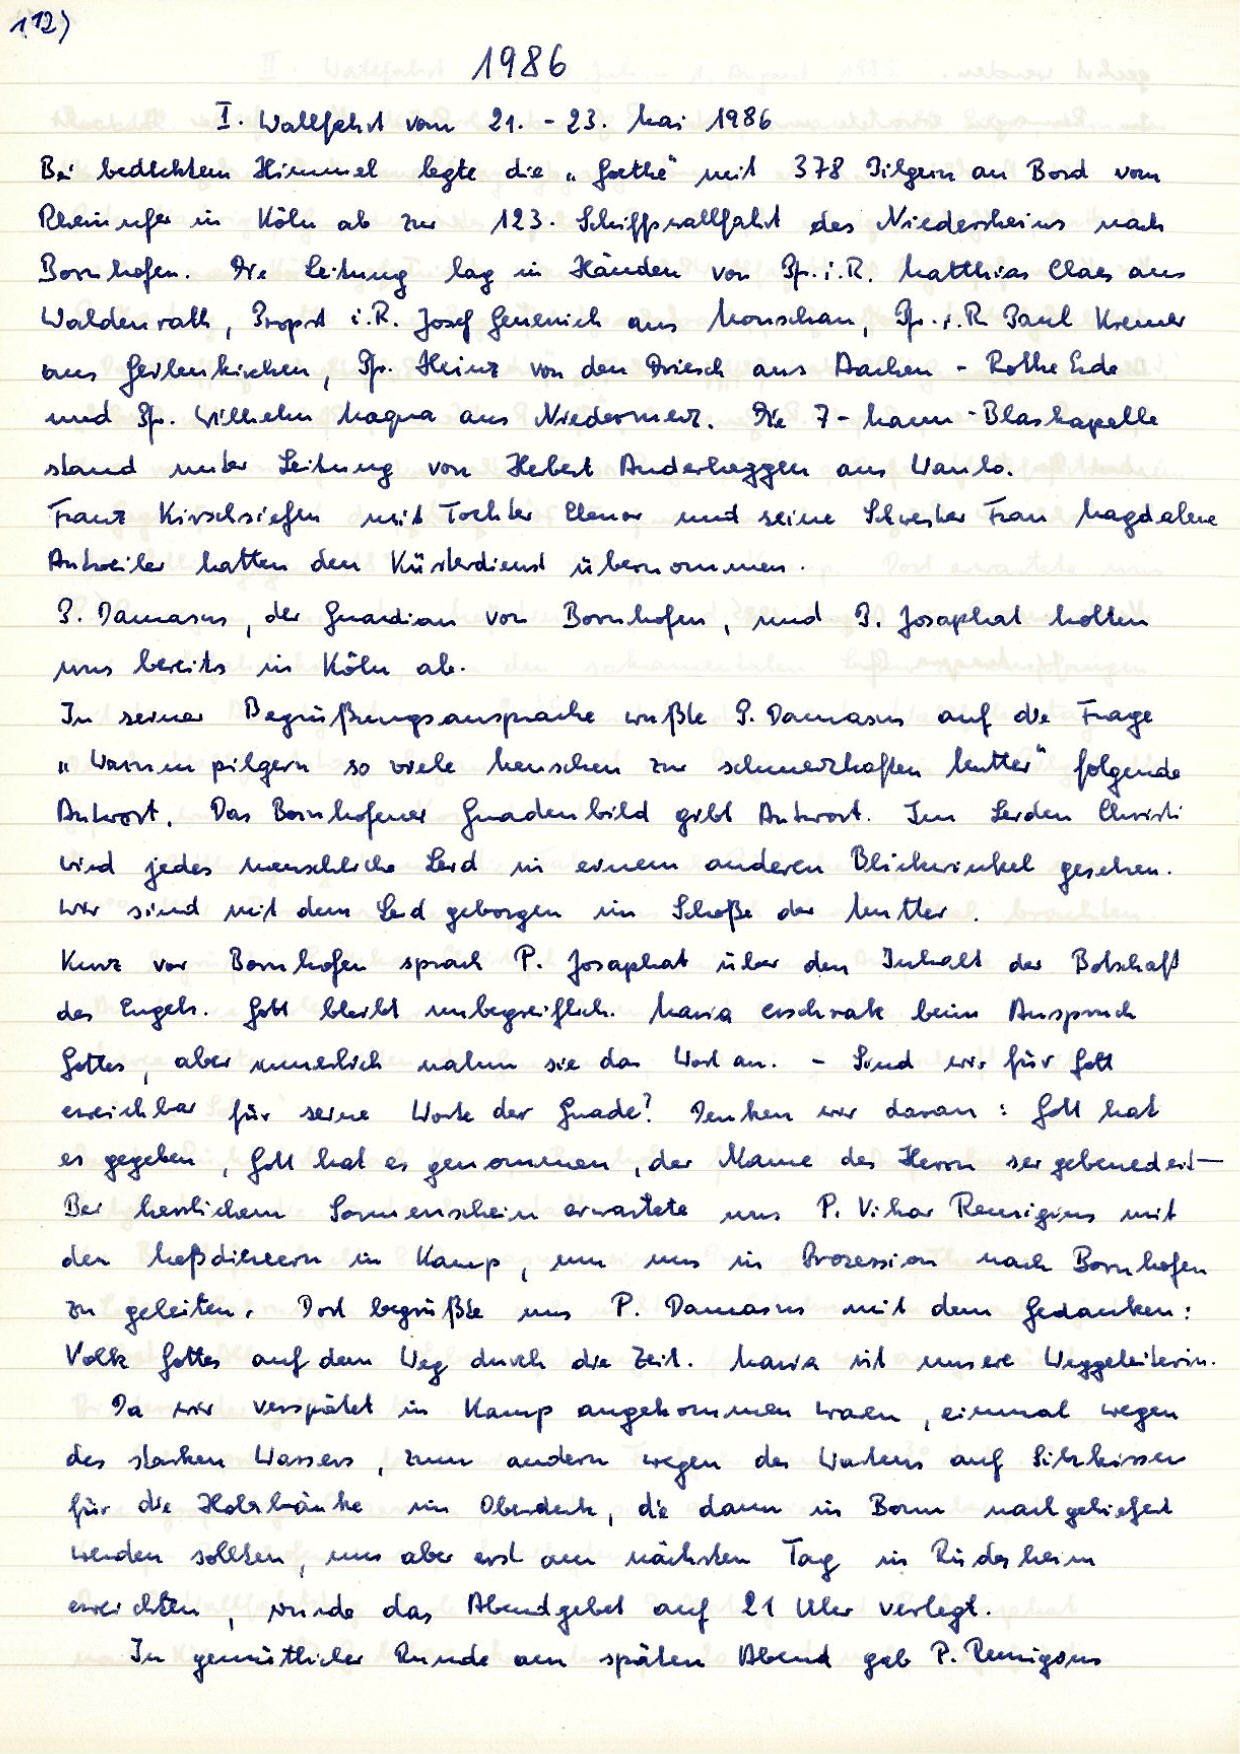 112)
1986
I. Wallfahrt vom 21. - 23. Mai 1986
Bei bedecktem Himmel legte die „Goethe" mit 378 Pilgern an Bord vom
Rheinufer in Köln ab zur 123. Schiffswallfahrt des Niederrheins nach
Bornhofen. Die Leitung lag in Händen von Pf. i. R. Matthias Claes aus
Waldenrath, Propst i.R. Josef Genenich aus Monschau, Pfr. i. R Paul Kremer
aus Geilenkirchen, Pfr. Heinz von den Driesch aus Aachen - Rothe Erde
und Pfr. Wilhelm Maqua aus Niedermerz. Die 7-Mann-Blaskapelle
stand unter Leitung von Hebert Anderheggen aus Wanlo.
Franz Kirschsiefen mit Tochter Elenor und seine Schwester Frau Magdalene
Antweiler hatten den Küsterdienst übernommen.
P. Damasus, der Guardian von Bornhofen, und P. Josaphat holten
uns bereits in Köln ab.
In seiner Begrüßungsansprache wußte P. Damasus auf die Frage
„Warum pilgern so viele Menschen zur schmerzhaften Mutter" folgende
Antwort. Das Bornhofener Gnadenbild gibt Antwort. Im Leiden Christi
wird jedes menschliche Leid in einem anderen Blickwinkel gesehen.
Wir sind mit dem Leid geborgen im Schoße der Mutter.
Kurz vor Bornhofen sprach P. Josaphat über den Inhalt der Botschaft
des Engels. Gott bleibt unbegreiflich. Maria erschrak beim Anspruch
Gottes, aber innerlich nahm sie das Wort an. - Sind wir für Gott
erreichbar für seine Worte der Gnade? Denken wir daran: Gott hat
es gegeben, Gott hat es genommen, der Name des Herrn sei gebenedeit-
Bei herrlichem Sonnenschein erwartete uns P. Vikar Remigius mit
den Meßdienern in Kamp, um uns in Prozession nach Bornhofen
zu geleiten. Dort begrüßte uns P. Damasus mit dem Gedanken:
Volk Gottes auf dem Weg durch die Zeit. Maria ist unsere Weggeleiterin.
Da wir verspätet in Kamp angekommen waren, einmal wegen
des starken Wassers, zum andern wegen des Wartens auf Sitzkissen
für die Holzbänke im Oberdeck, die dann in Bonn nachgeliefert
werden sollten, uns aber erst am nächsten Tag in Rüdesheim
erreichten, wurde das Abendgebet auf 21 Uhr verlegt.
In gemütlicher Runde am späten Abend gab P. Remigius